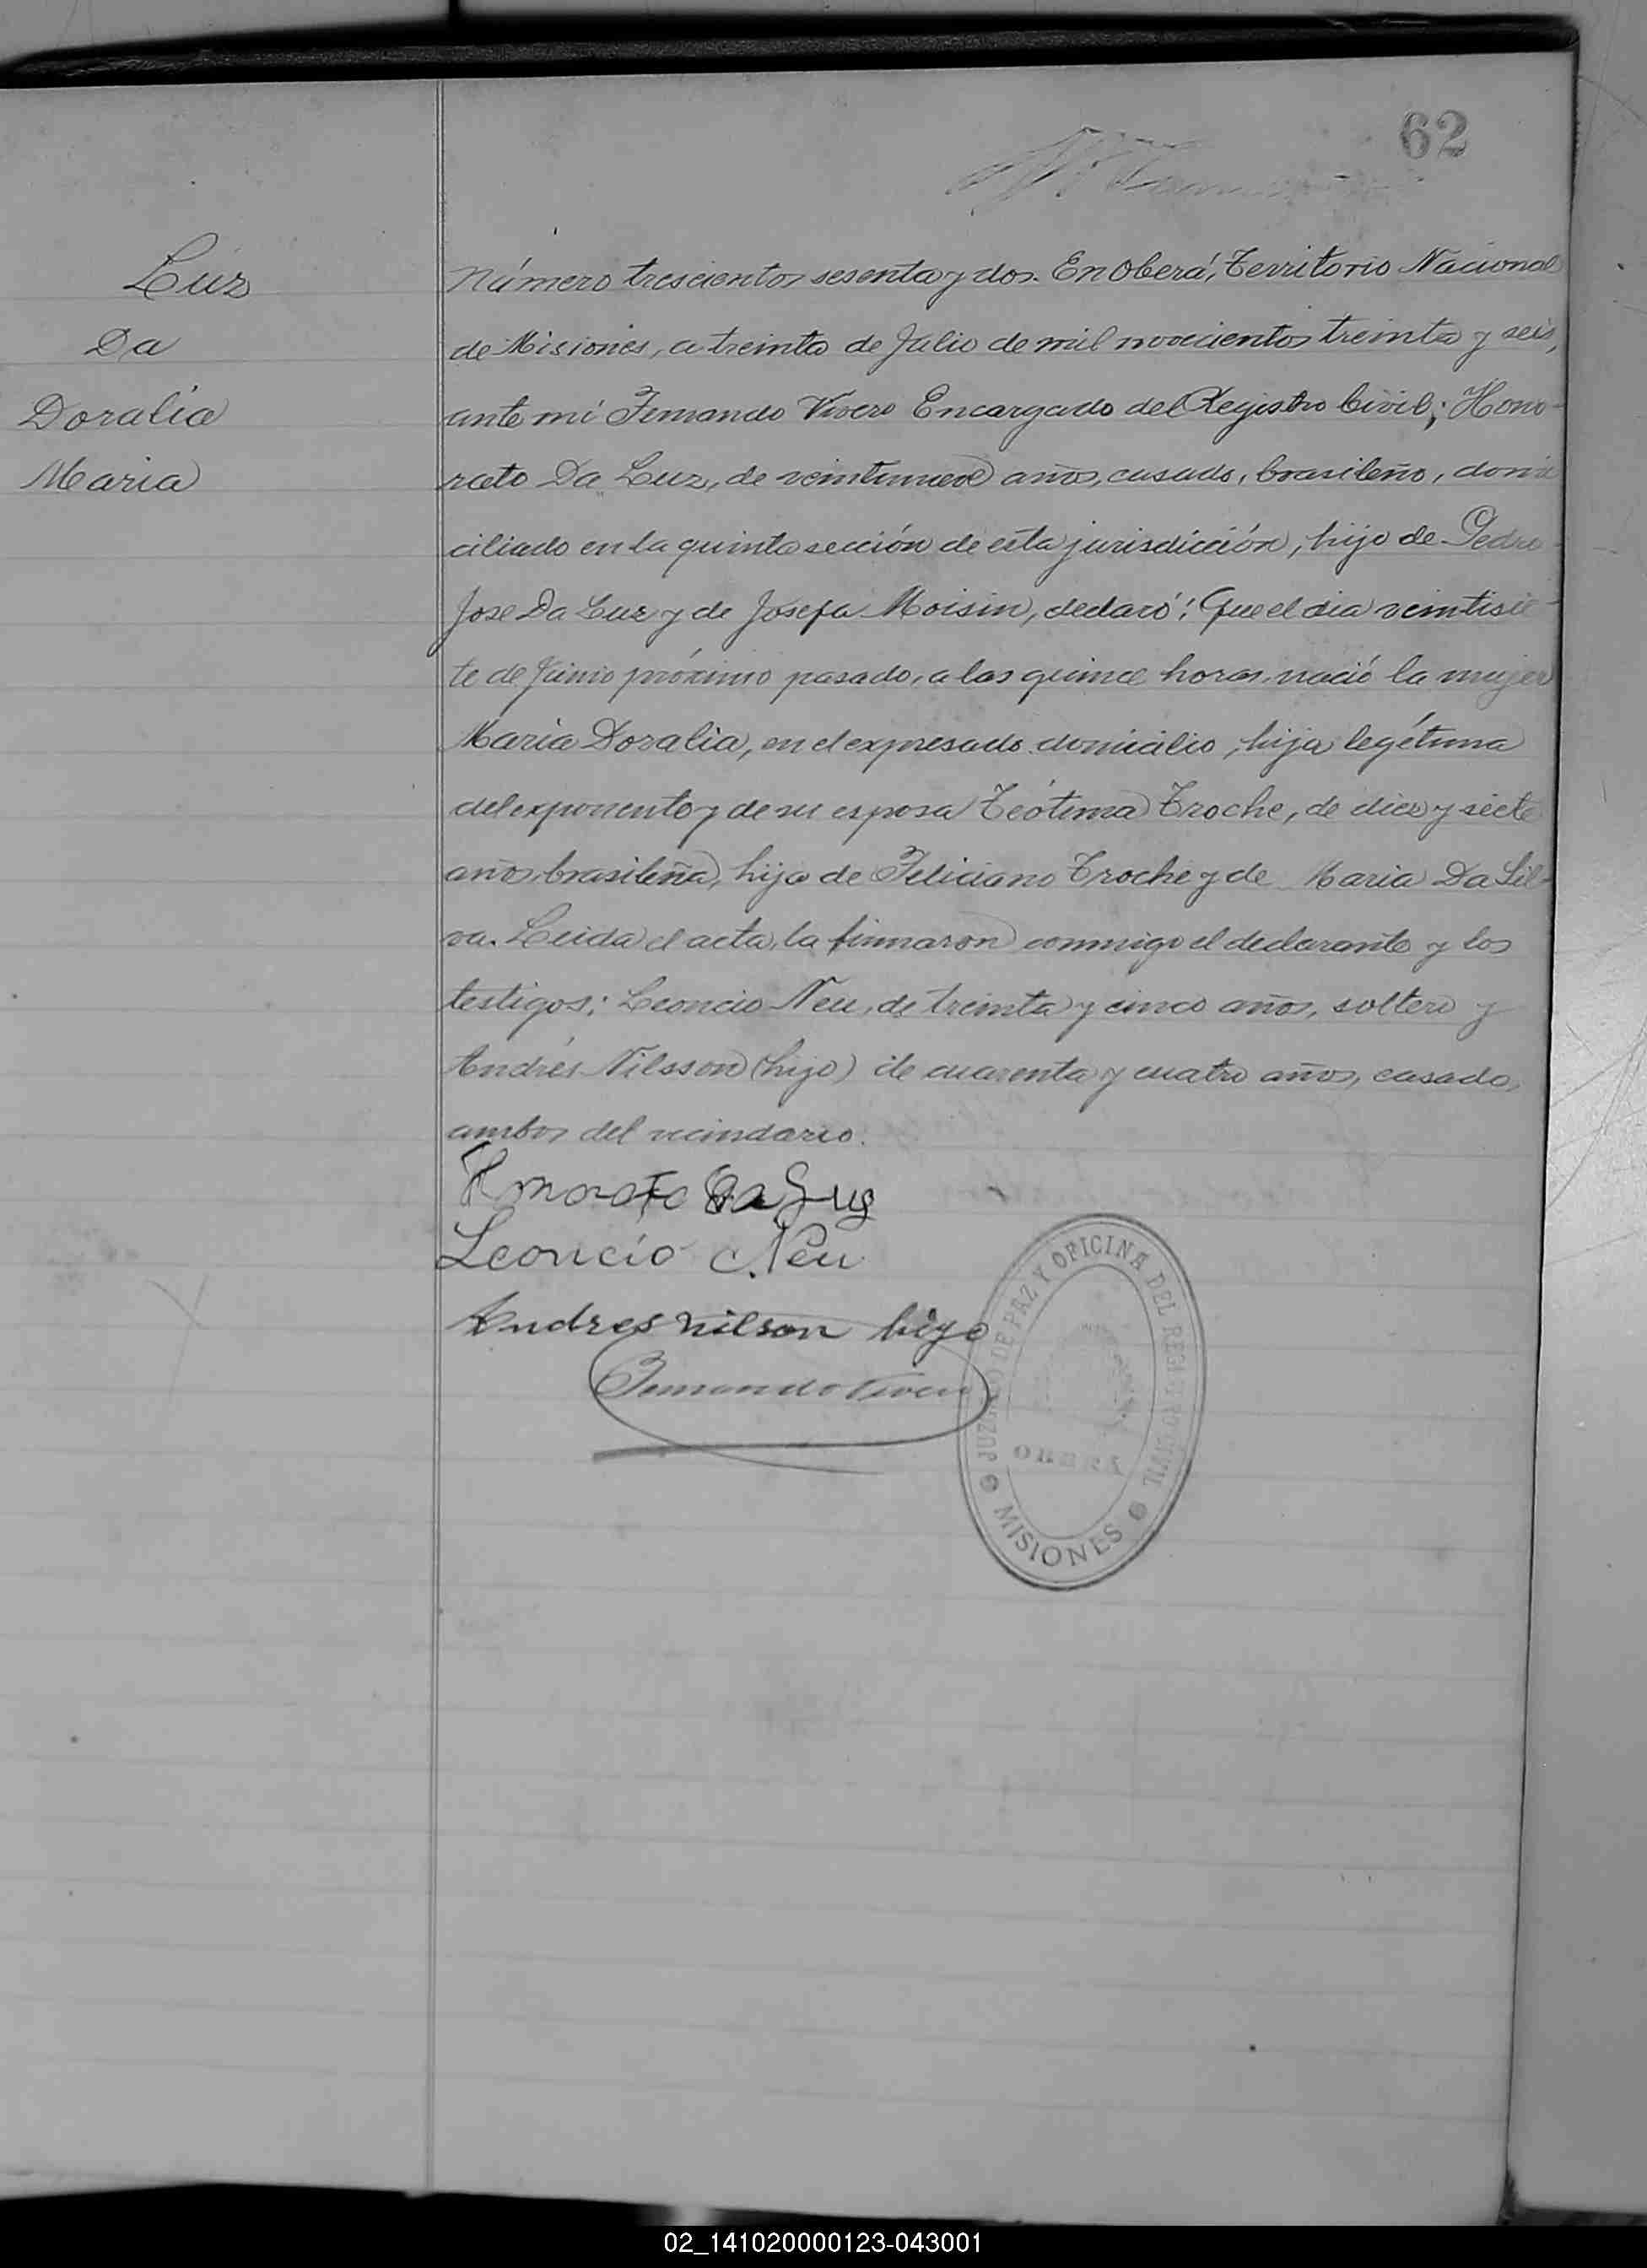 62
Luz
Da
Doralia
Maria
Número trescientos sesenta y dos. En Oberá, Territorio Nacional
de Misiones, a treinta de Julio de mil novecientos treinta y seis,
ante mí Fernando Vivero Encargado del Registro Civil; Hono-
rato Da Luz, de veintinueve años, casado, brasileño, domi
ciliado en la quinta sección de esta jurisdicción, hijo de Pedro
Jose Da Luz y de Josefa Moisin, declaró: Que el dia veintisie-
te de Junio próximo pasado, a las quince horas, nació la mujer
Maria Doralia, en el expresado domicilio, hija legítima
del exponente y de su esposa Teótima Troche, de diez y siete
años, brasileña, hija de Feliciano Troche y de Maria Da Sil-
va. Leida el acta, la firmaron conmigo el declarante y los
testigos: Leoncio Neu, de treinta y cinco años, soltero y
Andrés Nilsson (hijo) de cuarenta y cuatro años, casado,
ambos del vecindario.
Honorato Da Luz
Leoncio Neu
Andres Nilson hijo
Fernando Vivero
JUZGADO DE PAZ Y OFICINA DEL REGISTRO CIVIL
MISIONES
02_141020000123-043001